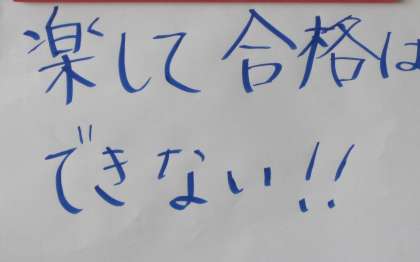 楽して合格は
できない!!